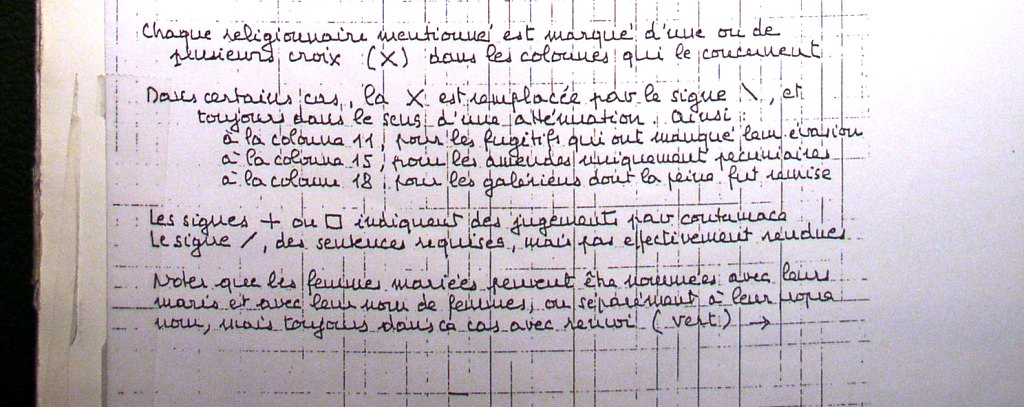 Chaque religionnaire mentionné est marqué d'une ou de
plusieurs croix (X) dans les colonnes qui le concernent
Dans certains cas, la X est remplacée par le signe \, et
toujours dans le sens d'une atténuation. Ainsi :
à la colonne 11, pour les fugitifs qui ont manqué leur évasion
à la colonne 15, pour les amendes uniquement pécuniaires
à la colonne 18, pour les galériens dont la peine fut remise
Les signes + ou □ indiquent des jugements par contumace
Le signe /, des sentences requises, mais pas effectivement rendues
Noter que les femmes mariées peuvent être nommées avec leurs
maris et avec leur nom de femmes, ou séparément à leur propre
nom, mais toujours dans ce cas avec renvoi (vert) →